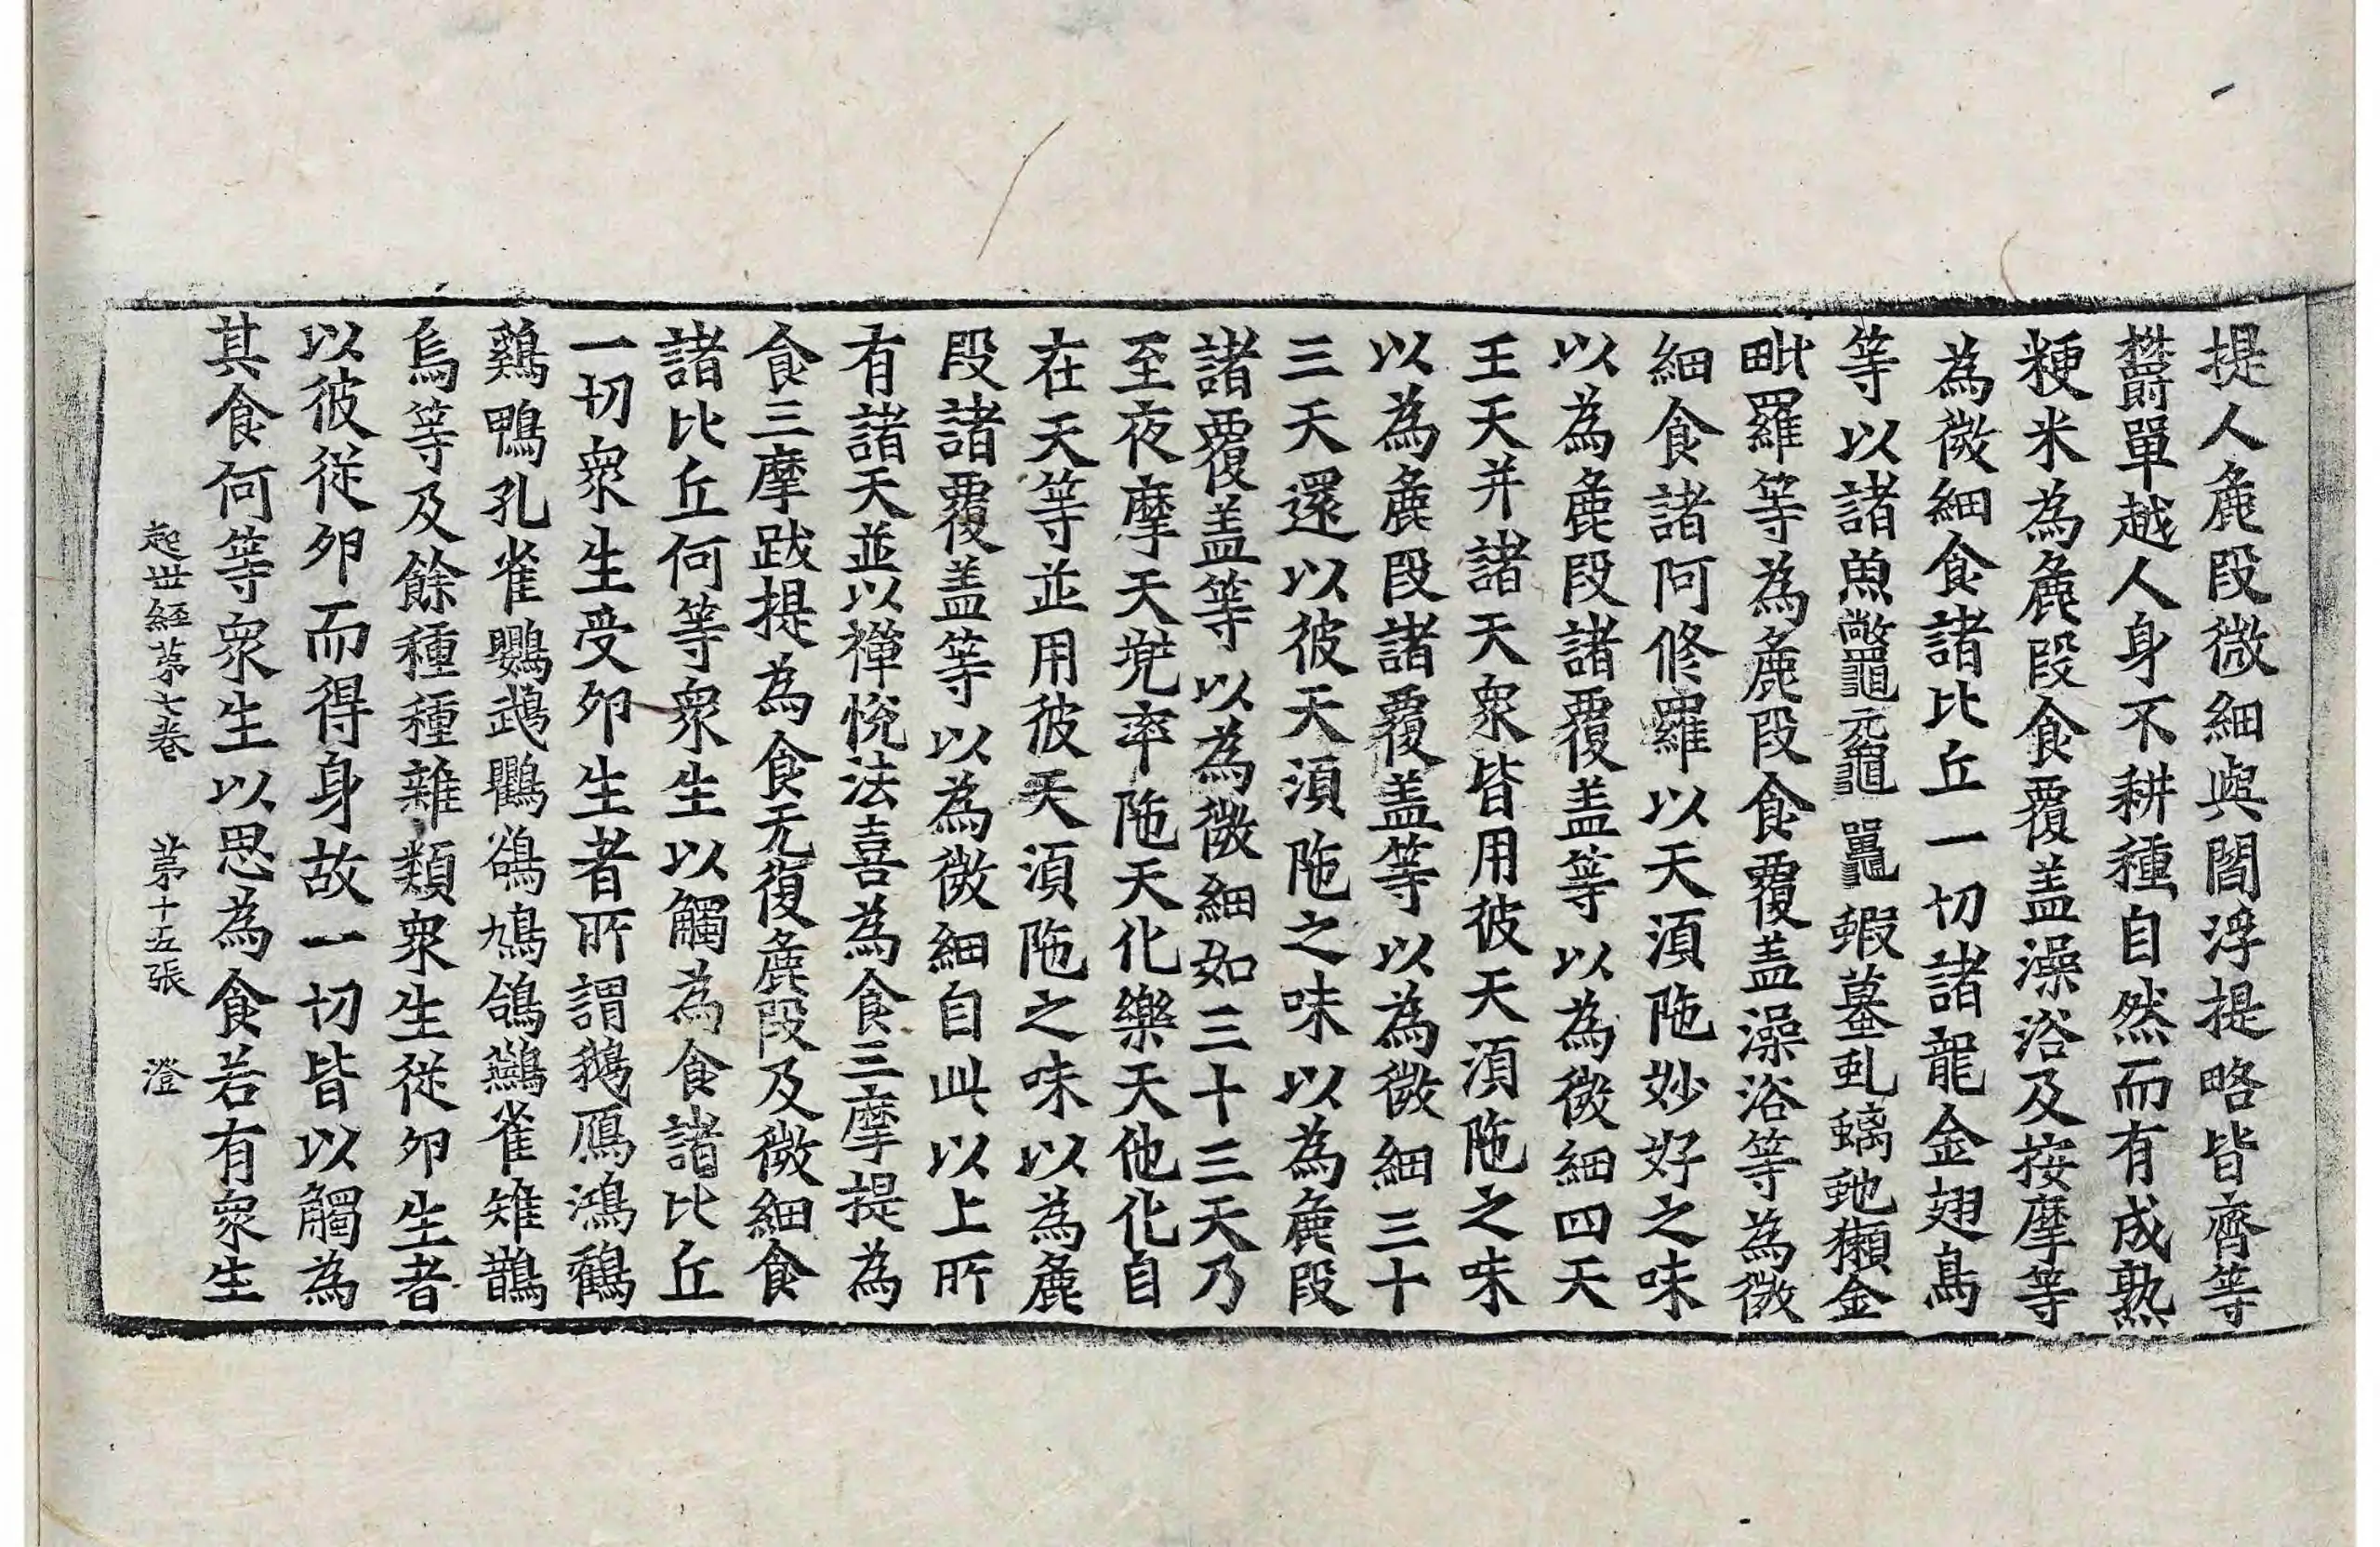 提人麁段微細與閻浮提略皆齊等
欝單越人身不耕種自然而有成熟
粳米為麁段食覆盖澡浴及按摩等
為微細食諸比丘一切諸龍金翅鳥
等以諸魚鼈黿鼉蝦蟇虬螭虵獺金
毗羅等為麁段食覆盖澡浴等為微
細食諸阿修羅以天湏陁妙好之味
以為麁段諸覆盖等以為微細四天
王天并諸天眾皆用彼天湏陁之味
以為麁段諸覆盖等以為微細三十
三天還以彼天湏陁之味以為麁段
諸覆盖等以為微細如三十三天乃
至夜摩天兠率陁天化樂天他化自
在天等並用彼天湏陁之味以為麁
段諸覆盖等以為微細自此以上所
有諸天並以禪悅法喜為食三摩提為
食三摩跋提為食无復麁段及微細食
諸比丘何等眾生以觸為食諸比丘
一切眾生受夘生者所謂鵝鴈鴻鶴
鷄鴨孔雀鸚鵡鸜鵒鳩鴿鷰雀雉鵲
烏等及餘種種雜類眾生從夘生者
以彼從夘而得身故一切皆以觸為
其食何等眾生以思為食若有眾生
起世經苐七卷　苐十五張　澄